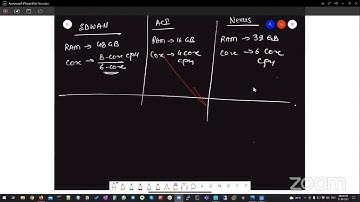 SDWAN
RAM → 48 GB
Cox → 8-core cpu
6-core
ACI
RAM → 16 GB
Cox → 4 core
cpu
NEXUS
RAM → 32 GB
Cox → 6 core
cpu
zoom